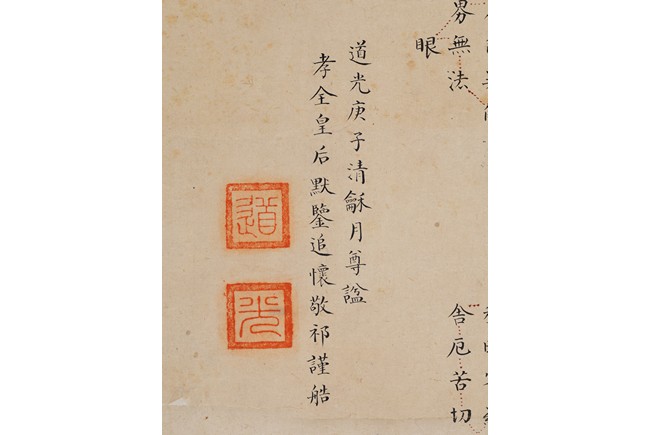 無法
眼
舍厄苦切
道光庚子清龢月尊諡
孝全皇后默鑒追懷敬祁謹艁
道
光